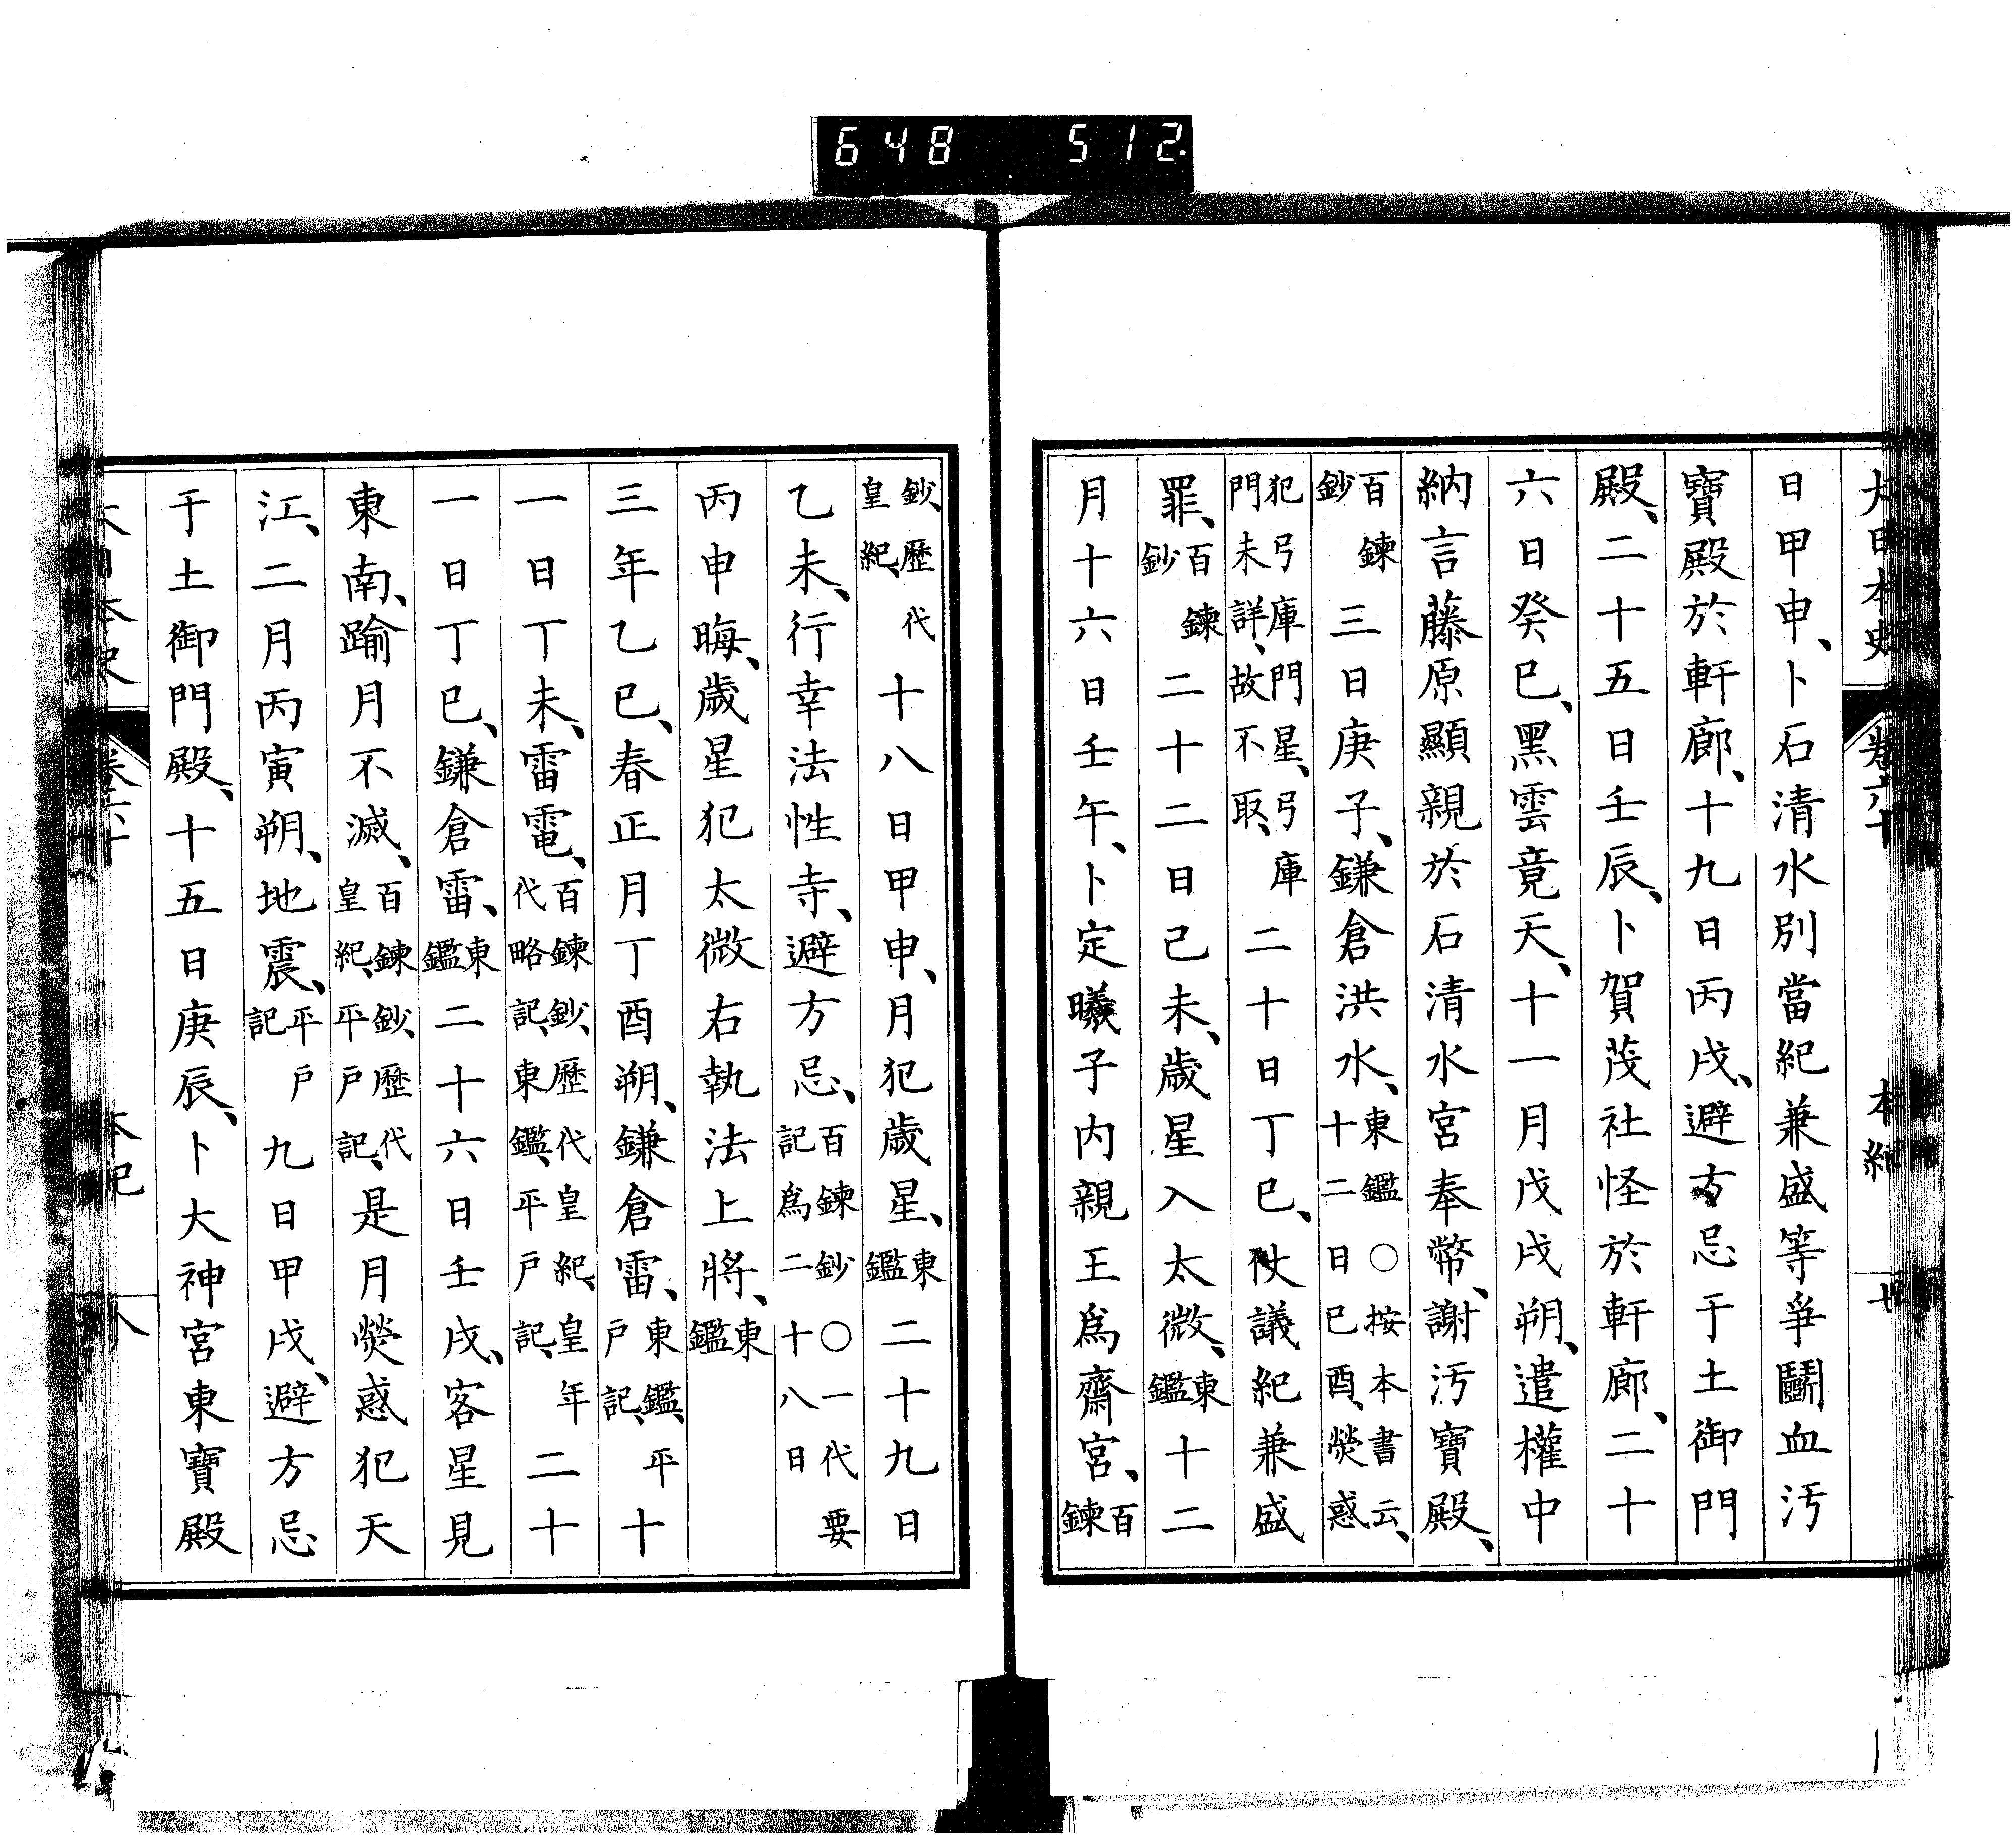 648 512
大日本史 卷六十 本紀
日甲申、卜石清水別當紀兼盛等爭鬭血汚
寶殿於軒廊、十九日丙戌、避方忌于土御門
殿、二十五日壬辰、卜賀茂社怪於軒廊、二十
六日癸巳、黑雲竟天、十一月戊戌朔、遣權中
納言藤原顯親於石清水宮奉幣、謝汚寶殿、
百鍊鈔三日庚子、鎌倉洪水、東鑑○按本書云、十二日巳酉、熒惑
犯弓庫門星、弓庫門未詳、故不取、二十日丁巳、仗議紀兼盛
罪、百鍊鈔二十二日己未、歲星入太微、東鑑十二
月十六日壬午、卜定曦子內親王爲齋宮、百鍊
鈔、歷代皇紀、十八日甲申、月犯歲星、東鑑二十九日
乙未、行幸法性寺、避方忌、百鍊鈔○一代要記爲二十八日
丙申晦、歲星犯太微右執法上將、東鑑
三年乙巳、春正月丁酉朔、鎌倉雷、東鑑、平戶記、十
一日丁未、雷電、百鍊鈔、歷代皇紀、皇年代略記、東鑑、平戶記、二十
一日丁巳、鎌倉雷、東鑑二十六日壬戌、客星見
東南、踰月不滅、百鍊鈔、歷代皇紀、平戶記、是月熒惑犯天
江、二月丙寅朔、地震、平戶記九日甲戌、避方忌
于土御門殿、十五日庚辰、卜大神宮東寶殿
本紀 八